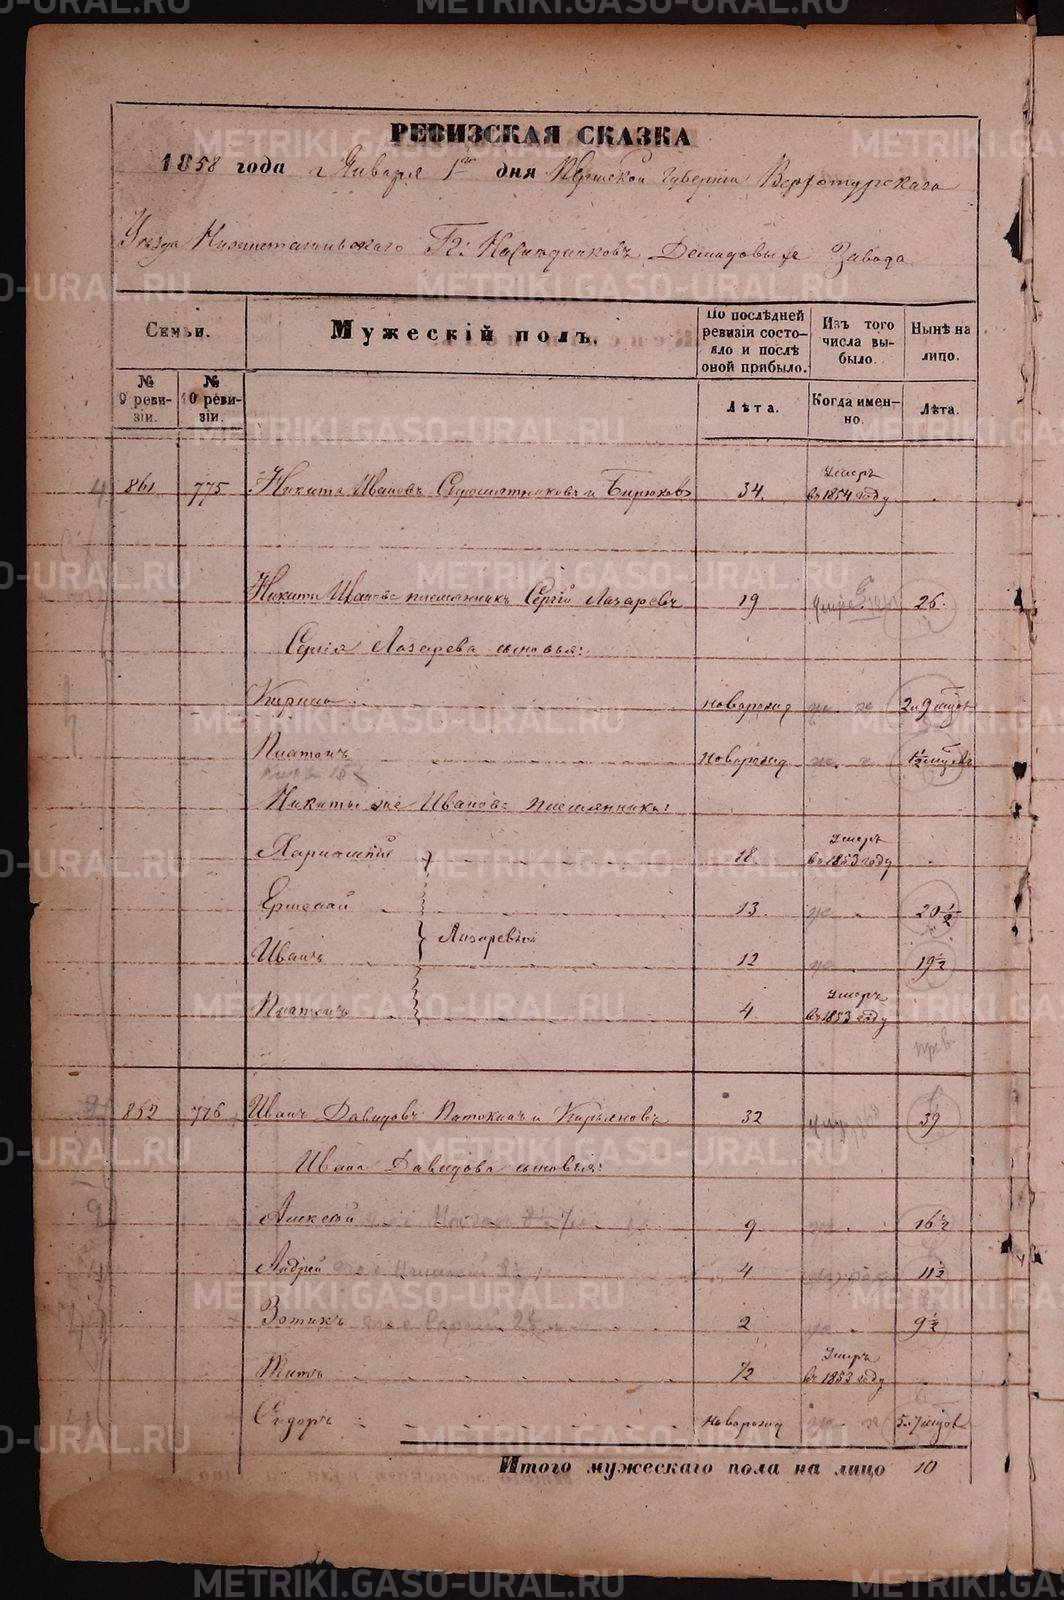 РЕВИЗСКАЯ СКАЗКА
1858 года Января 1го дня Пермской Губернiи Верхотурскаго
Уѣзда Нижнетагильскаго Гг: Наслѣдниковъ Демидовыхъ Завода
Семьи. Мужескiй полъ. По послѣдней ревизiи состояло и послѣ оной прибыло. Изъ того числа выбыло. Нынѣ на лицо.
№ 9 ревизiи. № 10 ревизiи. Лѣта. Когда именно. Лѣта.
861 775 Никита Ивановъ Сыромятниковъ и Бирюковъ 34. Умеръ въ 1854 году
Никиты Иванова племянникъ Сергiй Лазаревъ 19 26.
Сергiя Лазарева сыновья:
новорожд 2 и 9 мцовъ
Платонъ новорожд 1½ мцевъ
Никиты же Иванова племянники:
Харитонъ 18. Умеръ въ 1853 году
Ермолай 13. 20½
Лазаревы
Иванъ 12 19½
Платонъ 4 Умеръ въ 1853 году
862 776 Иванъ Давидовъ и Кирьяновъ 32 39
Ивана Давидова сыновья:
Алексѣй 9 16½
Андрей 4 11½
Зотикъ 2 9½
Титъ ½ Умеръ въ 1852 году
Сидоръ новорожд 5. 7 мцов
Итого мужескаго пола на лицо 10
METRIKI.GASO-URAL.RU